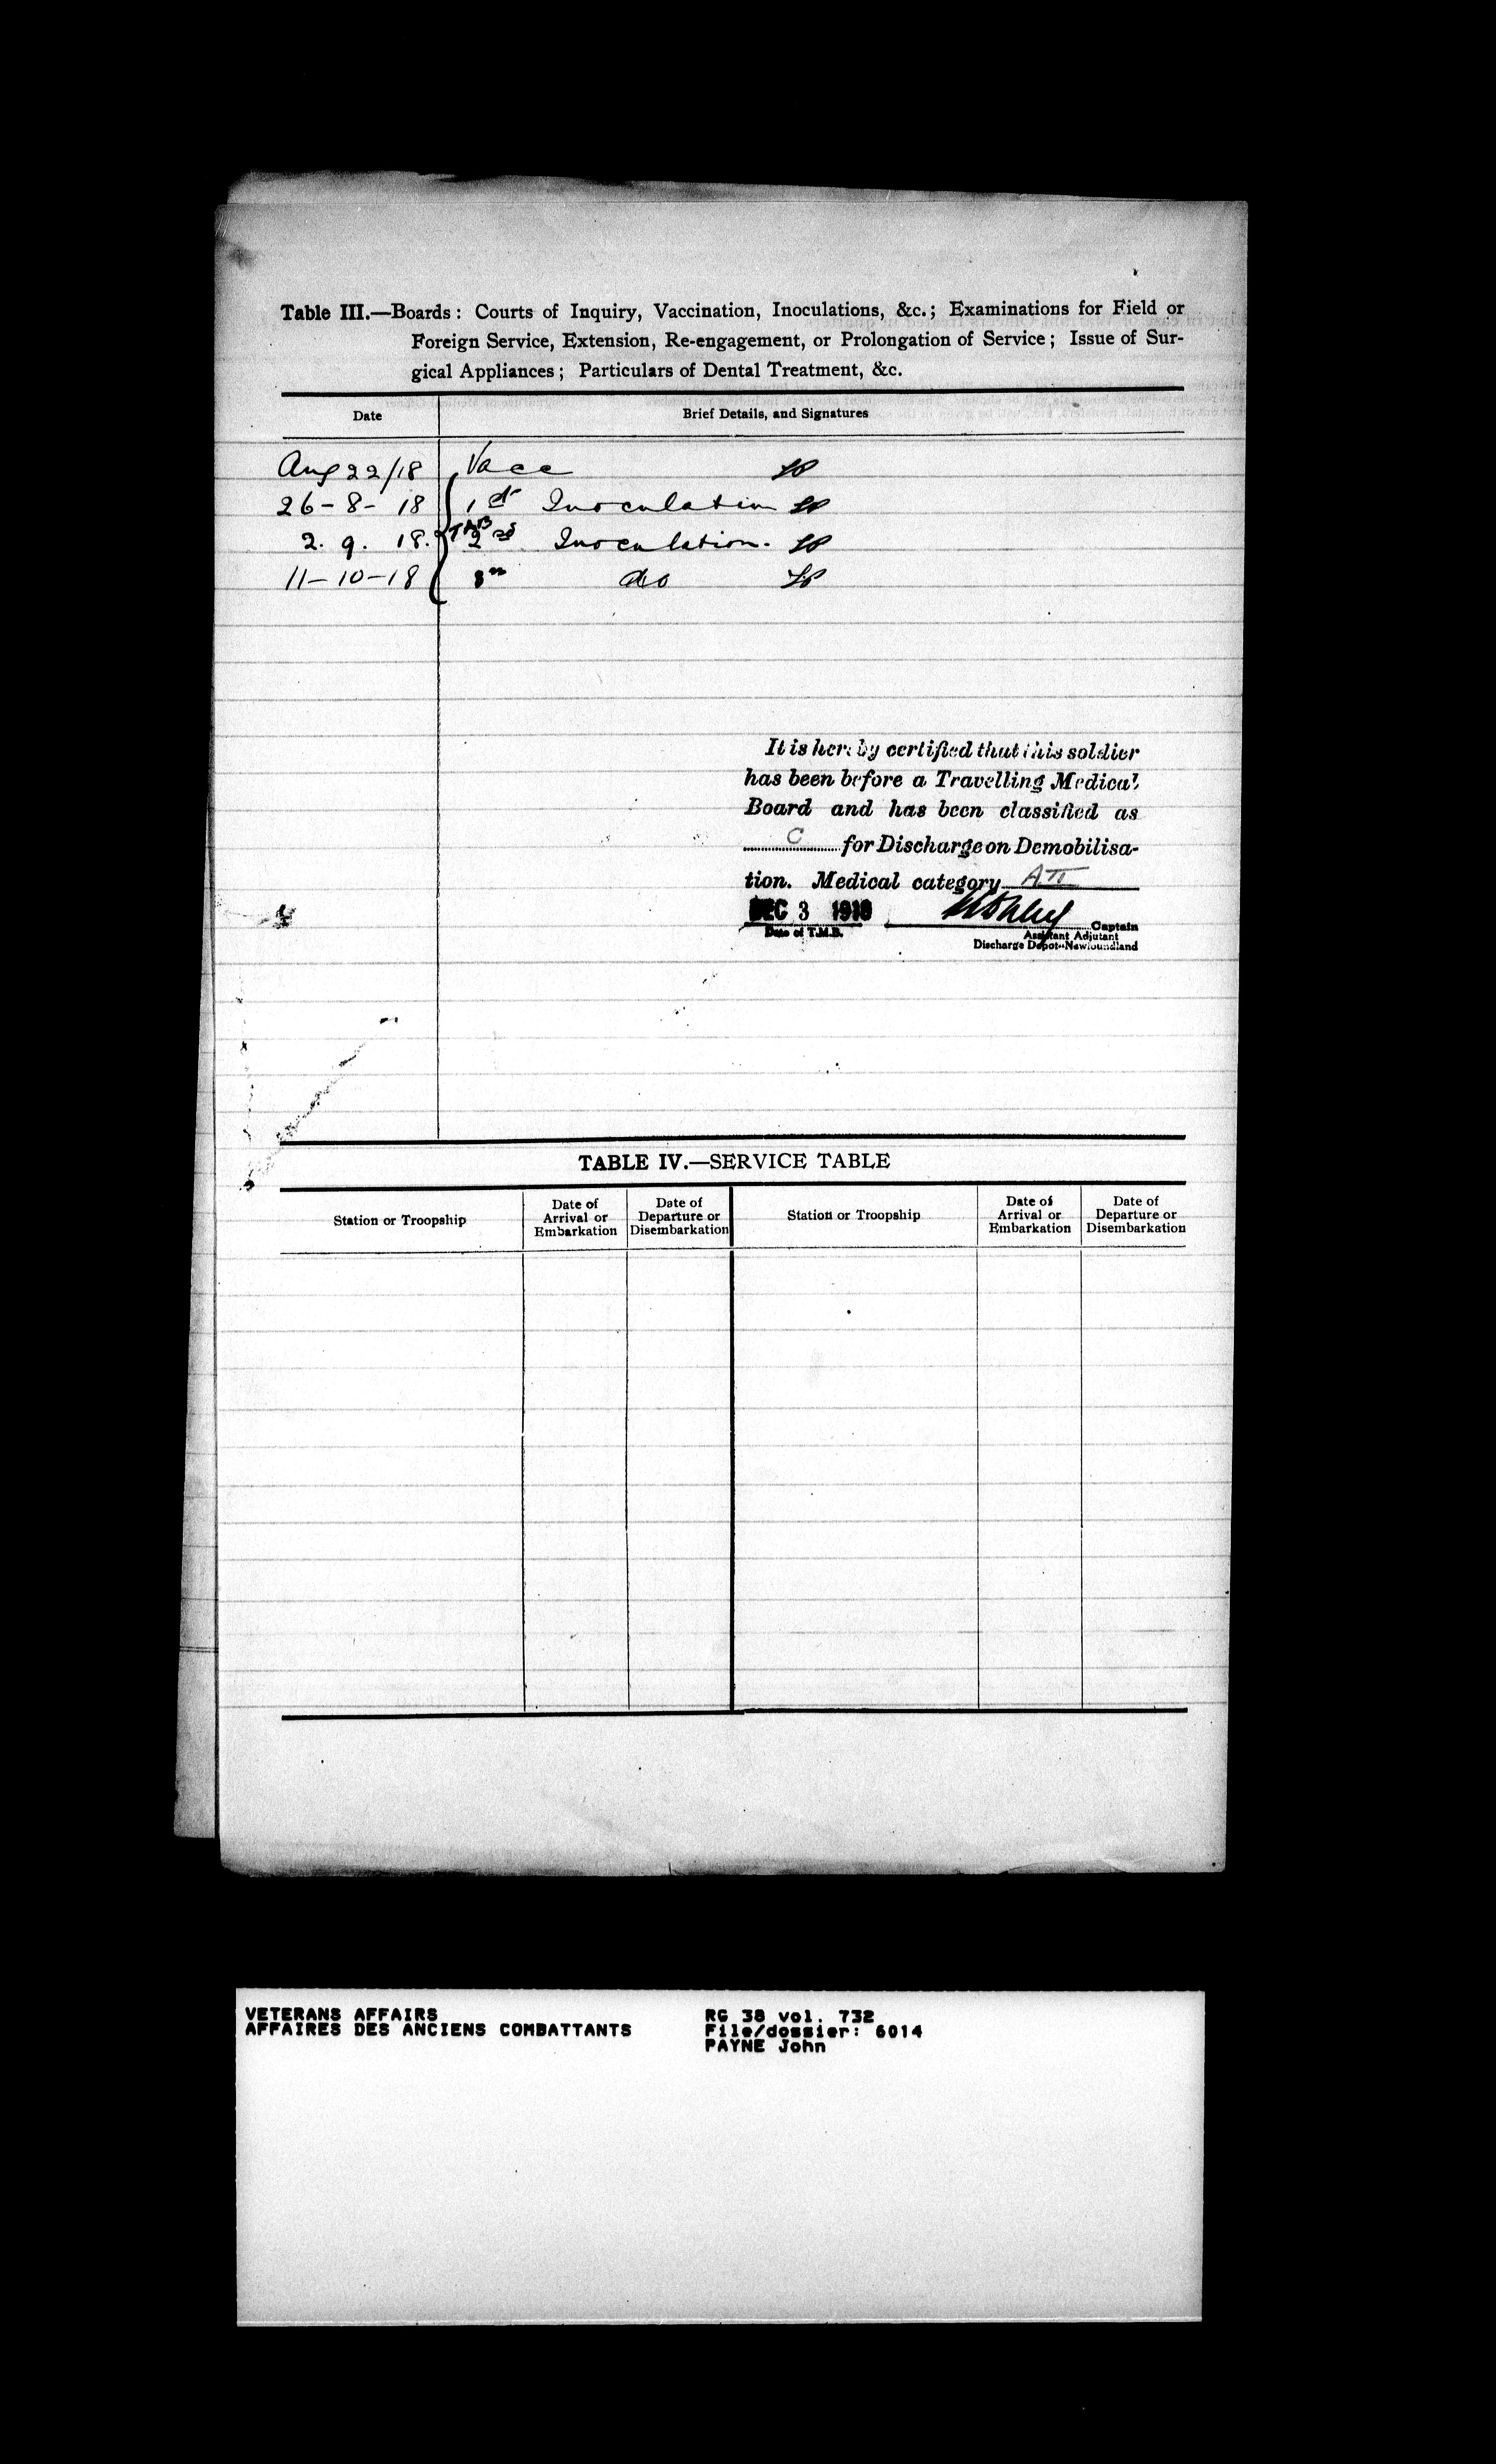 Table III.—Boards: Courts of Inquiry, Vaccination, Inoculations, &c.; Examinations for Field or
Foreign Service, Extension, Re-engagement, or Prolongation of Service; Issue of Sur-
gical Appliances; Particulars of Dental Treatment, &c.
Date Brief Details, and Signatures
Aug 22/18 Vacc
26-8-18 1st Inoculation
2.9.18. TAB 2nd Inoculation.
11-10-18 do
It is hereby certified that this soldier
has been before a Travelling Medical
Board and has been classified as
C for Discharge on Demobilisa-
tion. Medical category A II
DEC 3 1918
Captain
Date of T.M.B.
Assistant Adjutant
Discharge Depot-Newfoundland
TABLE IV.—SERVICE TABLE
Station or Troopship Date of Arrival or Embarkation Date of Departure or Disembarkation Station or Troopship Date of Arrival or Embarkation Date of Departure or Disembarkation
VETERANS AFFAIRS RG 38 vol. 732
AFFAIRES DES ANCIENS COMBATTANTS File/dossier: 6014
PAYNE John